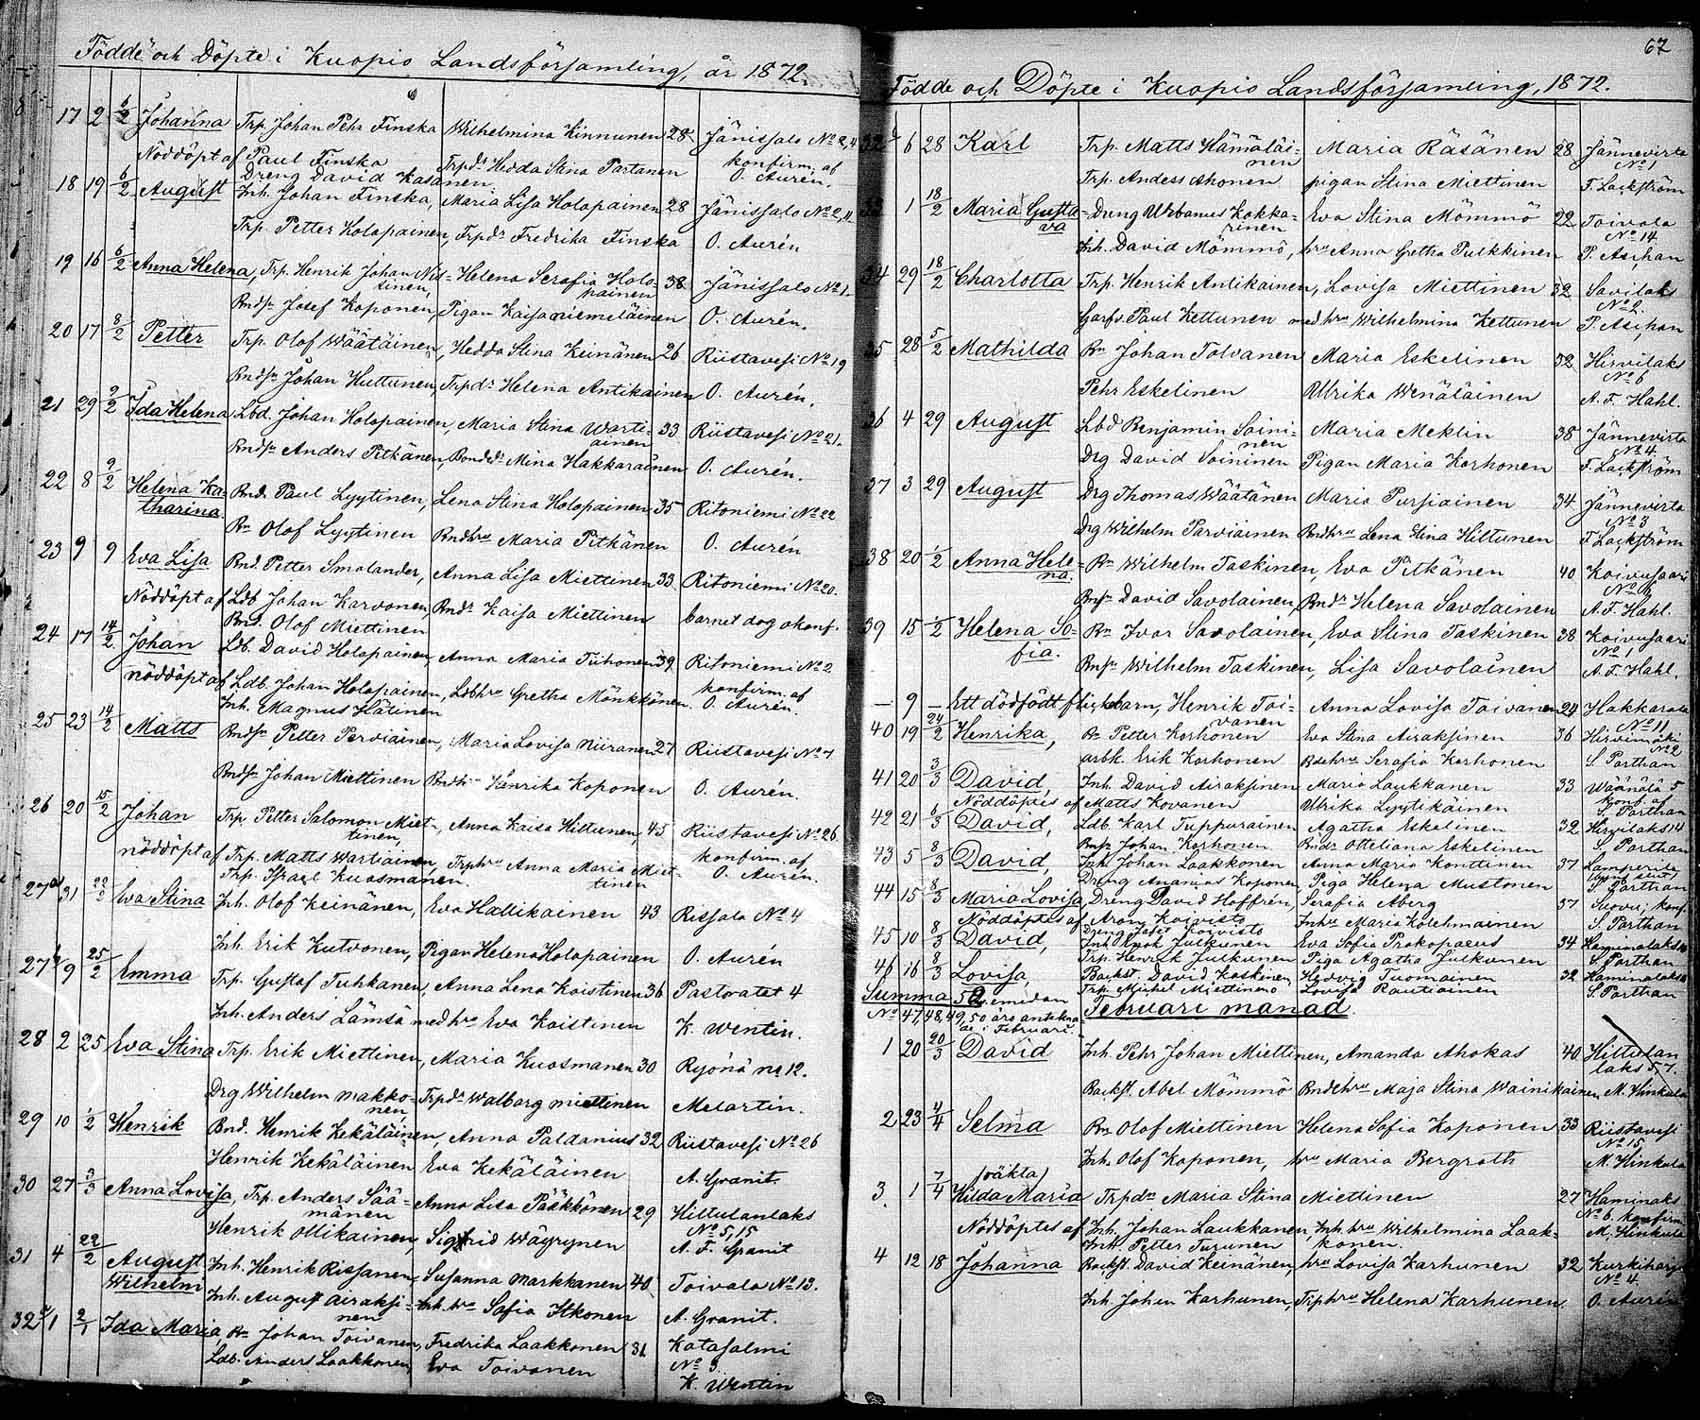 Födde och Döpte i Kuopio Landsförsamling, år 1872.
17 2 6/2 Johanna Trp. Johan Pehr Finska Wilhelmina Kinnunen 28 Jänissalo No 2,4
Nöddöpt af Paul Finska Trpdr Hedda Stina Partanen konfirm. af
Dreng David Kasanen O. Aurén.
18 19 6/2 August Inh. Johan Finska, Maria Lisa Holopainen 28 Jänissalo No 2,4
Trp. Petter Holopainen, Trpdr Fredrika Finska O. Aurén
19 16 6/2 Anna Helena, Trp. Henrik Johan Nis- Helena Serafia Holo- 38 Jänissalo No 1.
tinen, painen
Bndsn Josef Koponen, Pigan Kaisa Niemeläinen O. Aurén.
20 17 8/2 Petter Trp. Olof Wäätäinen, Hedda Stina Keinänen 26 Riistavesi No 19
Bndsn Johan Huttunen, Trpdr Helena Antikainen O. Aurén.
21 29 9/2 Ida Helena, Lbd. Johan Holopainen, Maria Stina Warti- 33 Riistavesi No 21.
ainen
Bndsn Anders Pitkänen, Bonddr Mina Hakkarainen O. Aurén.
22 8 9/2 Helena Ka- Bnd. Paul Lyytinen, Lena Stina Holopainen 35 Ritoniemi No 22
tharina.
Bn Olof Lyytinen Bndhru Maria Pitkänen O. Aurén
23 9 9 Eva Lisa Bnd. Petter Smolander, Anna Lisa Miettinen 33 Ritoniemi No 20.
Nöddöpt af Ldb Johan Karvonen, Bndr Kaisa Miettinen barnet dog okonf.
Bnd. Olof Miettinen
24 17 14/2 Johan Ldb. David Holopainen, Anna Maria Tiihonen 39 Ritoniemi No 2
nöddöpt af Ldb. Johan Holopainen, Ldbhru Gretha Mönkkönen konfirm. af
Inh. Magnus Hätinen O. Aurén.
25 23 14/2 Matts Bndsn Petter Parviainen, Maria Lovisa Niiranen 27 Riistavesi No 7
Bndsn Johan Miettinen Bndhru Henrika Koponen O. Aurén.
26 20 15/2 Johan Trp. Petter Salomon Miet- Anna Kaisa Hiltunen, 45 Riistavesi No 26
tinen,
nöddöpt af Trp. Matts Wartiainen, Trphru Anna Maria Miet- konfirm. af
Trp. Israel Kuosmanen. tinen O. Aurén.
27a 31 22/2 Eva Stina Inh. Olof Keinänen, Eva Hallikainen 43 Rissala No 4
Inh. Erik Kutvonen, Pigan Helena Holopainen O. Aurén
27b 9 25/2 Emma Trp. Gustaf Tuhkanen, Anna Lena Koistinen 36 Pastoratet 4
Inh. Anders Lämsä med hru Eva Koistinen K. Wentin.
28 2 25 Eva Stina Trp. Erik Miettinen, Maria Kuosmanen 30 Ryönä no 12.
Drg Wilhelm Makko- Trpdr Walborg Miettinen Melartin.
nen
29 10 1/2 Henrik Bnd. Henrik Kekäläinen, Anna Paldanius 32 Riistavesi No 26
Henrik Kekäläinen Eva Kekäläinen A. Granit.
30 27 3/3 Anna Lovisa, Trp. Anders Sää- Anna Lisa Pääkkönen 29 Hiltulanlaks
mänen No 5,15
Henrik Ollikainen, Sigfrid Wäyrynen A. F. Granit
31 4 22/2 August Inh. Henrik Rissanen, Susanna Markkanen 40 Toivala No 13.
Wilhelm
Inh. August Airaksi- Inh. hru Sofia Itkonen A. Granit.
nen
32a 1 2/1 Ida Maria, Bn Johan Toivanen, Fredrika Laakkonen 31 Kotasalmi
Ldb. Anders Laakkonen, Eva Toivanen No 3
K. Wentin
67
Födde och Döpte i Kuopio Landsförsamling, 1872.
32b 6 28 Karl Trp. Matts Hämäläi- Maria Räsänen 28 Jännevirta
nen No 1
Trp. Anders Ahonen pigan Stina Miettinen F. Lackström
33 1 18/2 Maria Gusta- Dreng Urbanus Kokka- Eva Stina Mömmö 22 Toivala
va rinen No 14
Inh. David Mömmö, hru Anna Gretha Pulkkinen P. Asihan
34 29 18/2 Charlotta Trp. Henrik Antikainen, Lovisa Miettinen 32 Savilaks
No 2
Garfv. Paul Kettunen med hru Wilhelmina Kettunen P. Asihan
35 28 5/2 Mathilda Bn Johan Tolvanen Maria Eskelinen 32 Hirvilaks
No 6
Pehr Eskelinen Ulrika Wenäläinen A. F. Hahl.
36 4 29 August Lbd Benjamin Soini- Maria Meklin 38 Jännevirta
nen No 4
Drg David Soininen Pigan Maria Korhonen F. Lackström
37 3 29 August Drg Thomas Wäätänen Maria Pursiainen 34 Jännevirta
No 3
Drg Wilhelm Parviainen Bndhru Lena Stina Hiltunen F. Lackström
38 20 1/2 Anna Hele- Bn Wilhelm Taskinen, Eva Pitkänen 40 Koivusaari
na.
Bnsn David Savolainen, Bndr Helena Savolainen A. F. Hahl.
39 15 1/2 Helena So- Bn Ivar Savolainen, Eva Stina Taskinen 28 Koivusaari
fia. No 1
Bnsn Wilhelm Taskinen, Lisa Savolainen A. F. Hahl.
— 9 — Ett dödfödt flickebarn, Henrik Toi- Anna Lovisa Toivanen 24 Hakkarala
vanen No 11
40 19 24/2 Henrika, Bn Petter Korhonen Eva Stina Airaksinen 36 Hirvimäki
No 2
arbk. Erik Korhonen Bdehru Serafia Korhonen S. Parthan
41 20 3/3 David, Inh. David Airaksinen Maria Laukkanen 33 Wäänälä 5
Nöddöptes af Matts Kovanen Ulrika Lyytikäinen konf. af
S. Parthan
42 21 6/3 David, Ldb. Karl Tuppurainen Agatha Eskelinen 32 Hirvilaks 14
Bnsn Johan Korhonen Bndr Otteliana Eskelinen S. Parthan
43 5 8/3 David, Inh Johan Laakkonen Anna Maria Konttinen 37 Lamperila
Dreng Ananias Koponen, Piga Helena Mustonen S. Parthan
44 15 8/3 Maria Lovisa, Dreng David Hoffrén, Serafia Åberg 37 Suovu; konf.
Nöddöptes af Aron Koivisto Inhru Maria Kolehmainen S. Parthan
45 10 8/3 David, Inh Enok Julkunen Eva Sofia Prokopaeus 34 Haminalaks
Trp. Henrik Julkunen Piga Agatha Julkunen S. Parthan
46 16 8/3 Lovisa, Backst. David Koskinen Hedvig Tuomainen 32 Haminalaks
Trp. Michel Miettinen Lovisa Rautiainen S. Parthan
Summa 52 emedan
No 47, 48, 49, 50 äro antekna-
de i Februari. Februari månad.
1 20 20/3 David Inh. Pehr Johan Miettinen, Amanda Ahokas 40 Hiltulan
laks 5,7.
Backst. Abel Mömmö Bndehru Maja Stina Wainikainen M. Hinkula
2 23 4/4 Selma Bn Olof Miettinen Helena Sofia Koponen 33 Riistavesi
No 15
Inh. Olof Koponen, hru Maria Bergroth M. Hinkula
(oäkta)
3 1 7/4 Hilda Maria Trpdr Maria Stina Miettinen 27 Haminaks
No 6. konfirm.
Nöddöptes af Inh. Johan Laukkanen, Inh. hru Wilhelmina Laak- M. Hinkula
Inh. Petter Turunen konen.
4 12 18 Johanna Backst. David Keinänen, hru Lovisa Karhunen 32 Kurkiharju
No 4.
Inh Johan Karhunen, Trphru Helena Karhunen. O. Aurén